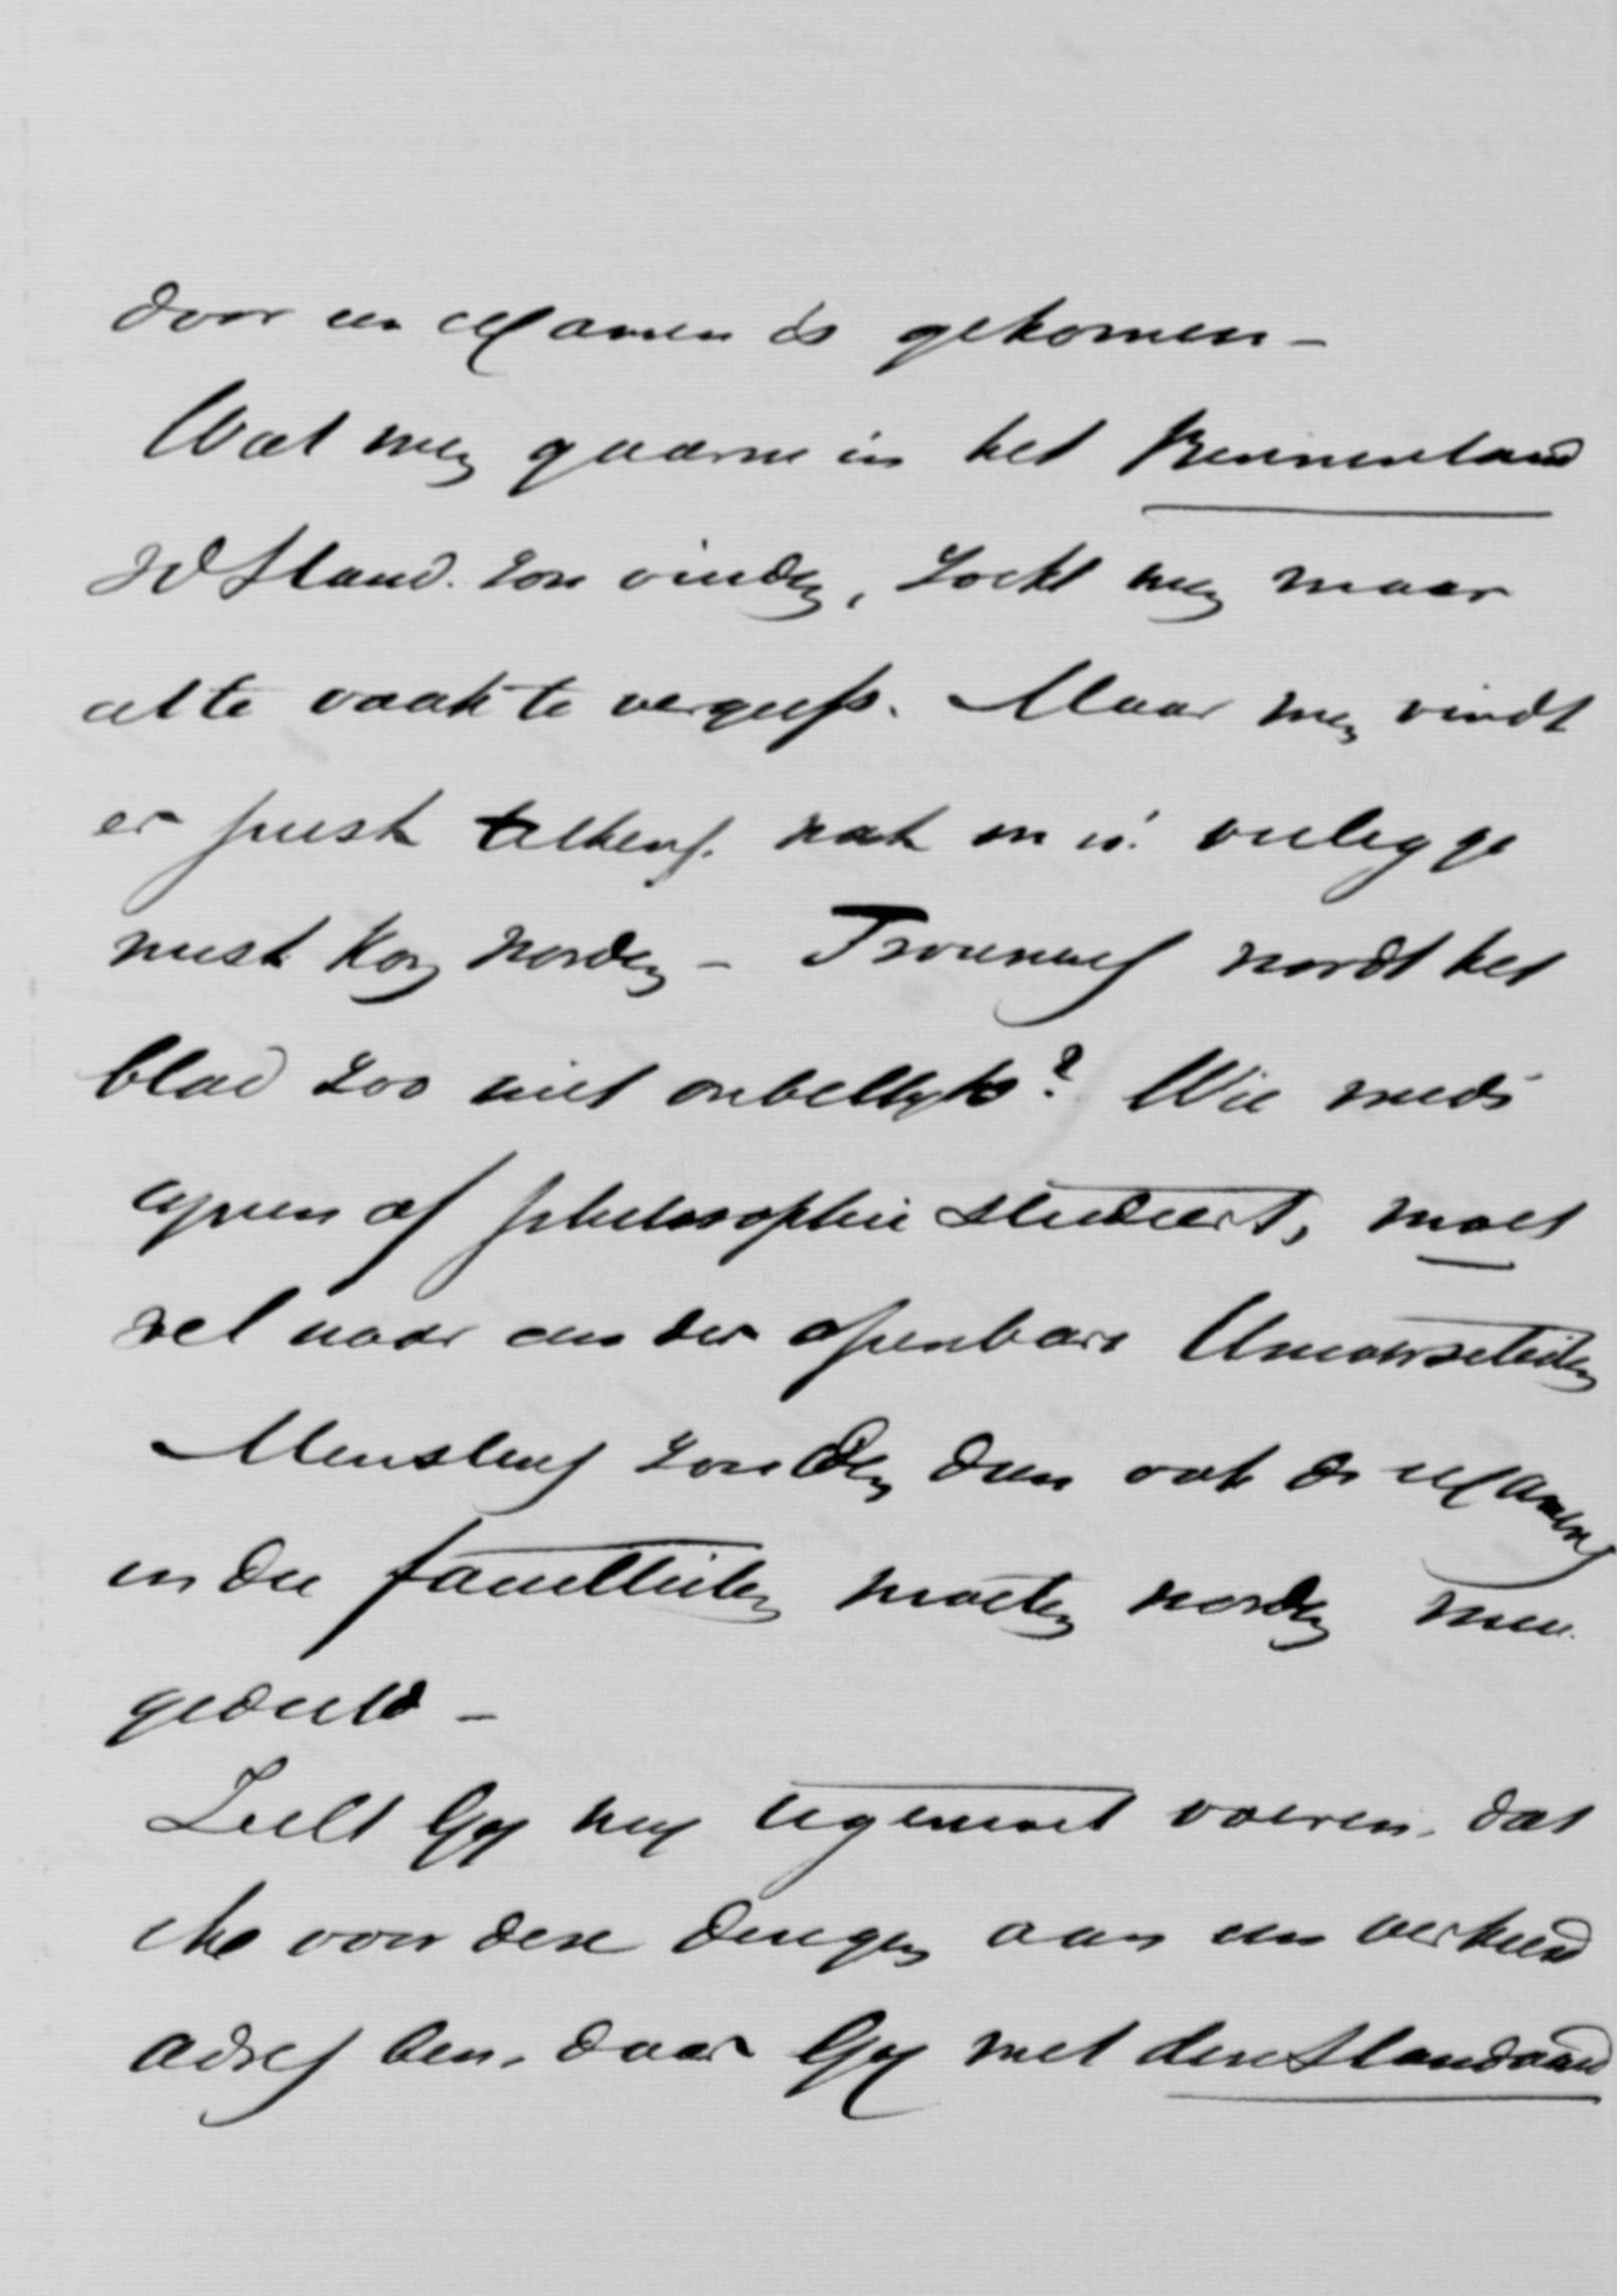 door een examen is gekomen –
Wat men gaarne in het Binnenland
v/d Stand. zou vinden, zoekt men maar
al te vaak te vergeefs. Maar men vindt
er juist telkens wat m.i. veilig ge
mist kon worden – Trouwens wordt het
blad zoo niet onbillijk? Wie medi
cynen of philosophie studeert, moet
wel naar een der openbare Universiteiten
Minstens zouden dan ook de examens
in die faculteiten moeten worden mee
geduld –
Zult Gy my tegemoet voeren, dat
ik voor deze dingen aan een verkeerd
adres ben, daar Gy met den Standaard